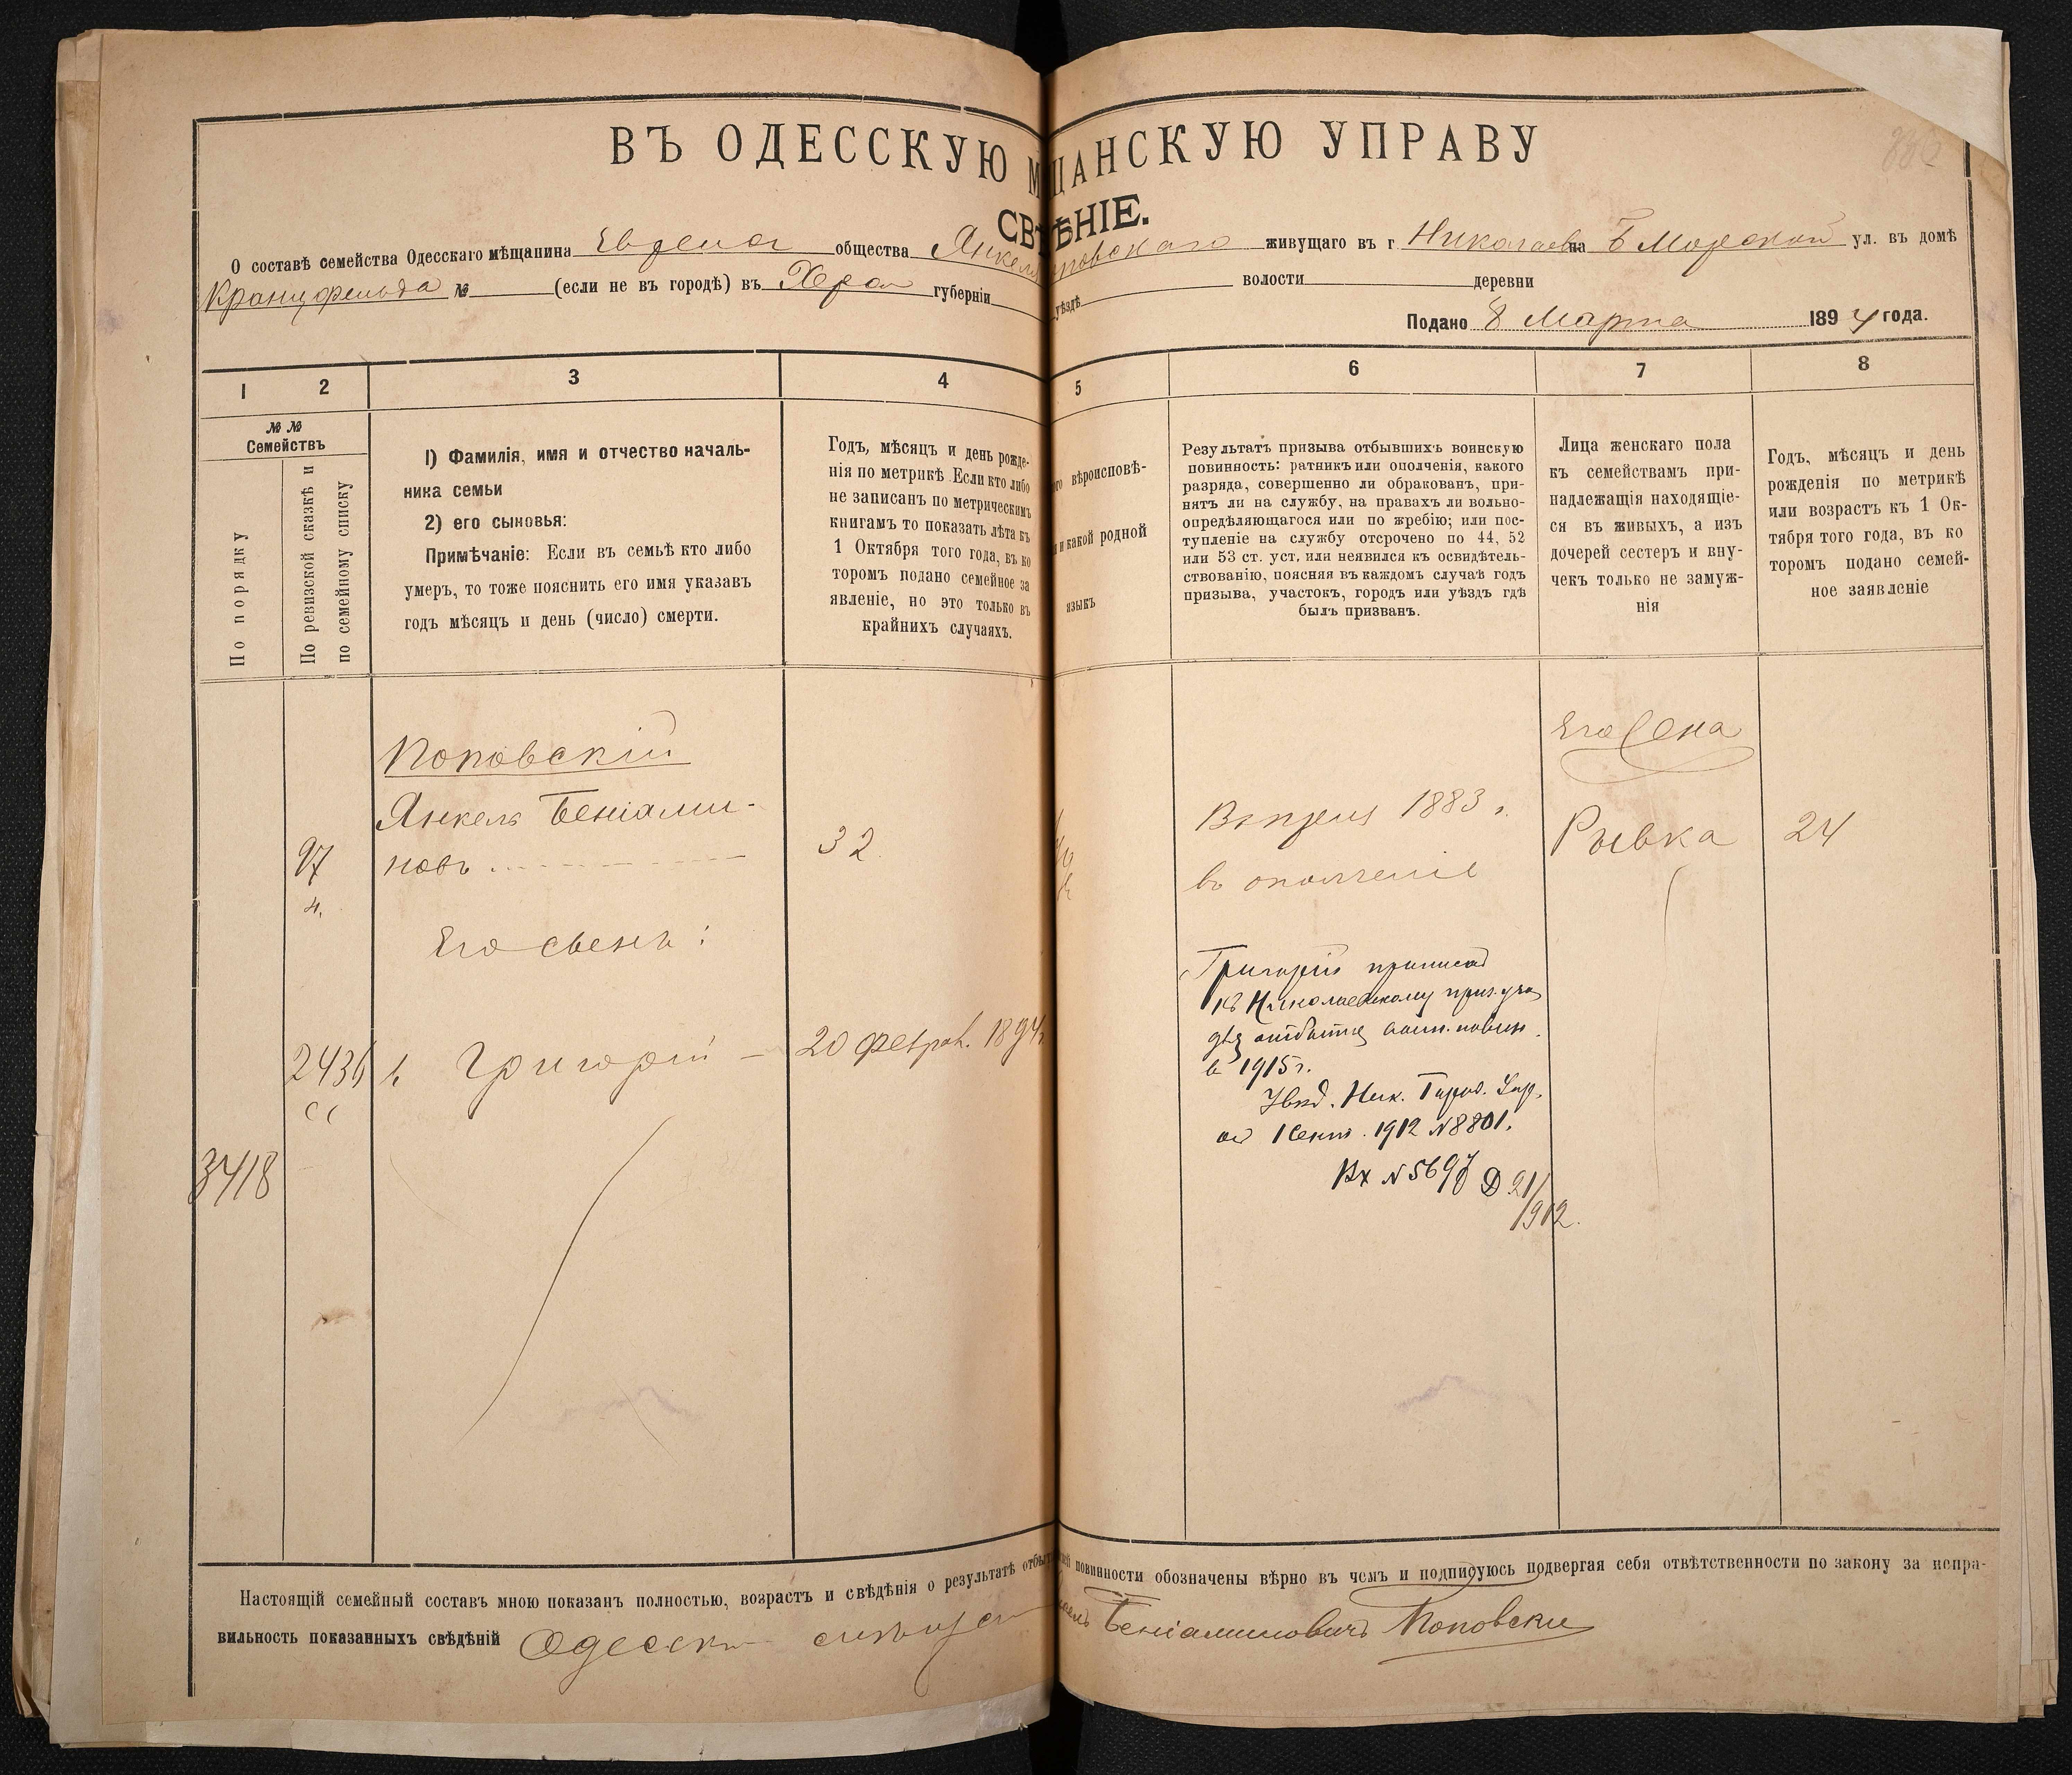 ВЪ ОДЕССКУЮ М ЩАНСКУЮ УПРАВУ
СВ ѢНІЕ.
О составѣ семейства Одесскаго мѣщанина общества Янкеля повскаго живущаго въ г. Николаевѣ на Б Морской ул. въ домѣ
Кранцфельда № (если не въ городѣ) въ Херсон губерніи уѣздѣ волости деревни
Подано 8 Марта 1894 года.
1 2 3 4 5 6 7 8
№ №
Семействъ
По порядку
По ревизской сказкѣ и
по семейному списку
1) Фамилія, имя и отчество началь-
ника семьи
2) его сыновья:
Примѣчаніе: Если въ семьѣ кто либо
умеръ, то тоже пояснить его имя указавъ
годъ мѣсяцъ и день (число) смерти.
Годъ, мѣсяцъ и день рожде-
нія по метрикѣ. Если кто либо
не записанъ по метрическимъ
книгамъ то показать лѣта къ
1 Октября того года, въ ко
торомъ подано семейное за
явленіе, но это только въ
крайнихъ случаяхъ.
го вѣроисповѣ-
и какой родной
языкъ
Результатъ призыва отбывшихъ воинскую
повинность: ратникъ или ополченія, какого
разряда, совершенно ли обракованъ, при-
нятъ ли на службу, на правахъ ли вольно-
опредѣляющагося или по жребію; или пос-
тупленіе на службу отсрочено по 44, 52
или 53 ст. уст. или неявился къ освидѣтель-
ствованію, поясняя въ каждомъ случаѣ годъ
призыва, участокъ, городъ или уѣздъ гдѣ
былъ призванъ.
Лица женскаго пола
къ семействамъ при-
надлежащія находящіе-
ся въ живыхъ, а изъ
дочерей сестеръ и вну-
чекъ только не замуж-
нія
Годъ, мѣсяцъ и день
рожденія по метрикѣ
или возрастъ къ 1 Ок-
тября того года, въ ко
торомъ подано семей-
ное заявленіе
Поповскій
Его жена
Янкель Беніами-
новъ
97
4.
32
1883 г.
въ ополченіе
Рывка 24
Его сынъ:
2436 Григорій — 20 феврал. 1894
3418
Григорій приписан
къ Николаевскому приз. уч
для отбытія воин. повин.
в 1915 г.
Увѣд. Ник. Город. Упр.
от 1 Сент. 1912 № 8801.
Вх № 5697 Д 21/
1912.
Настоящій семейный составъ мною показанъ полностью, возрастъ и свѣдѣнія о результатѣ отбыт повинности обозначены вѣрно въ чемъ и подписуюсь подвергая себя отвѣтственности по закону за непра-
вильность показанныхъ свѣдѣній Беніаминовичъ Поповски